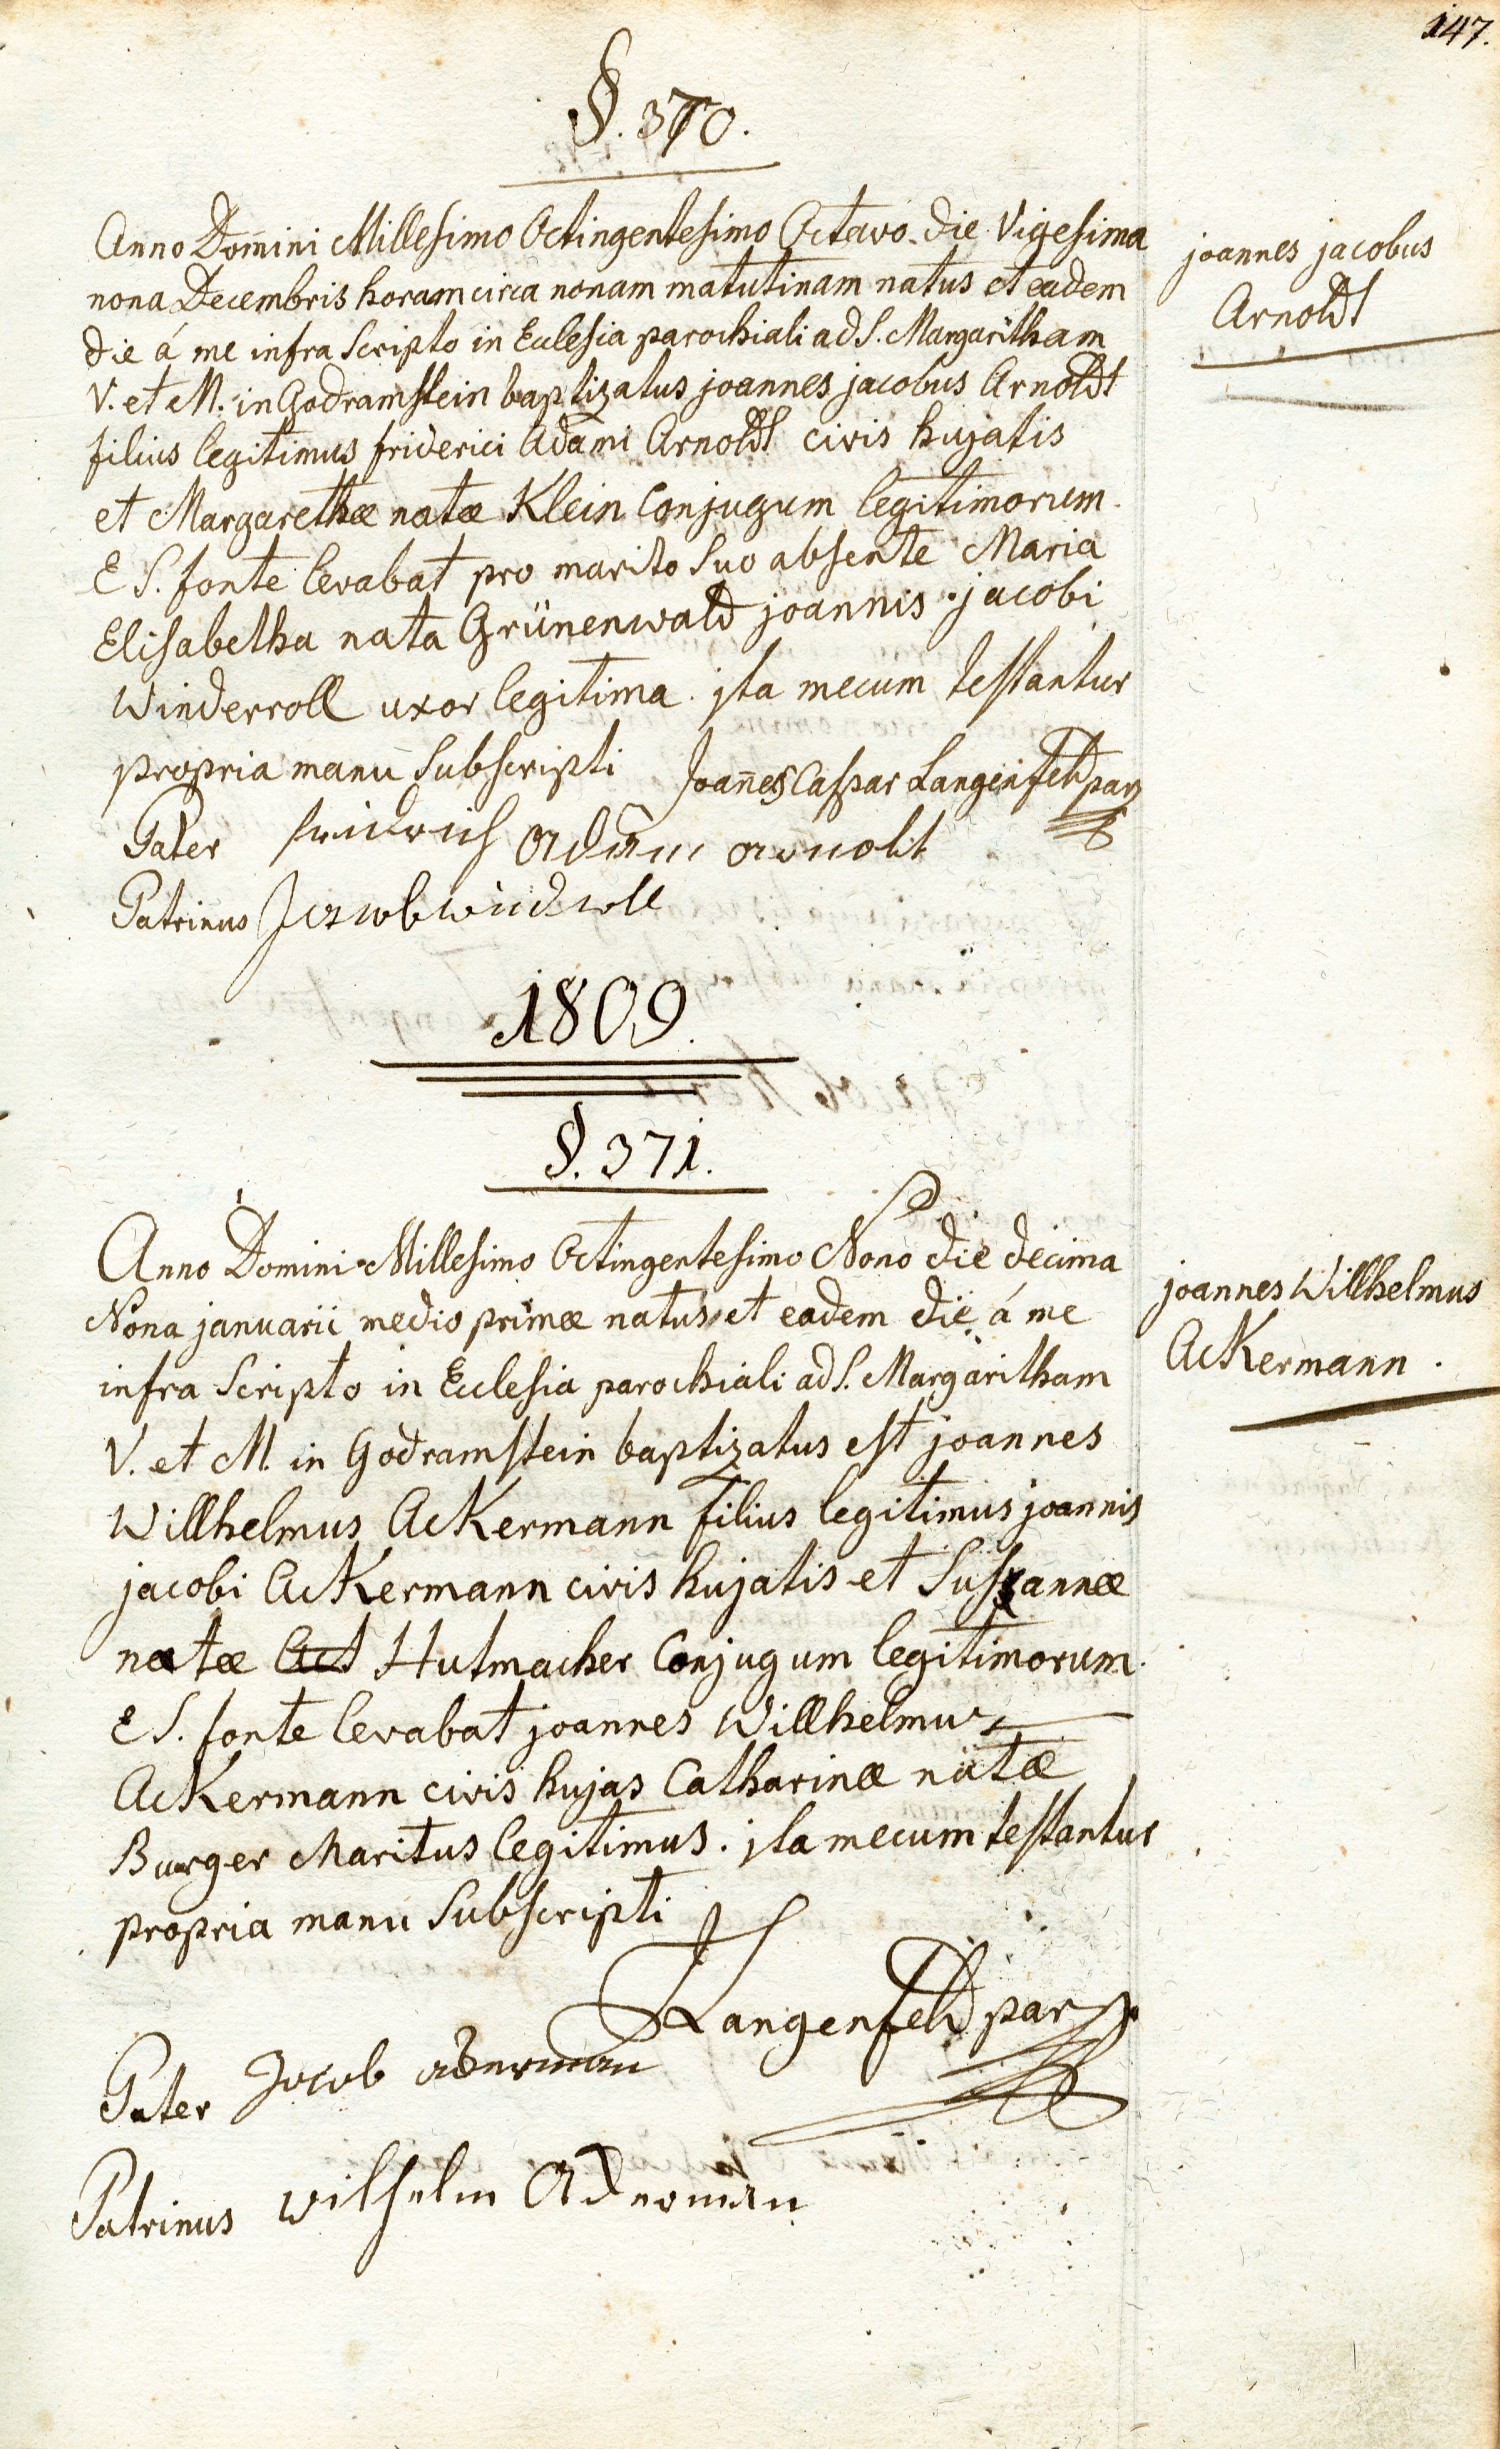 147.
§. 370.
Anno Domini Millesimo Octingentesimo Octavo die Vigesima
nona Decembris horam circa nonam matutinam natus et eadem
die á me infra Scripto in Ecclesia parochiali ad S. Margaritham
V. et M. in Godramstein baptizatus joannes jacobus Arnoldt
filius legitimus friderici Adami Arnoldt civis hujatis
et Margarethæ natæ Klein Conjugum legitimorum.
E S. fonte levabat pro marito Suo absente Maria
Elisabetha nata Grünenwald joannis jacobi
Winderroll uxor legitima. jta mecum testantur
propria manu Subscripti Joanes Caspar Langenfeld par
Pater fridrich Adam arnolt
Patrinus Jacob windroll
joannes jacobus
Arnoldt
1809.
§. 371.
Anno Domini Millesimo Octingentesimo Nono die decima
Nona januarii medio primæ natus et eadem die á me
infra Scripto in Ecclesia parochiali ad S. Margaritham
V. et M. in Godramstein baptizatus est joannes
Willhelmus Ackermann filius legitimus joannis
jacobi Ackermann civis hujatis et Susannæ
natæ Act Hutmacher Conjugum legitimorum.
E S. fonte levabat joannes Willhelmus
Ackermann civis hujas Catharinæ natæ
Burger Maritus legitimus. jta mecum testantur
propria manu Subscripti
Langenfeld par
Pater Jacob ackerman
Patrinus wilhelm Ackerman
joannes Willhelmus
Ackermann.